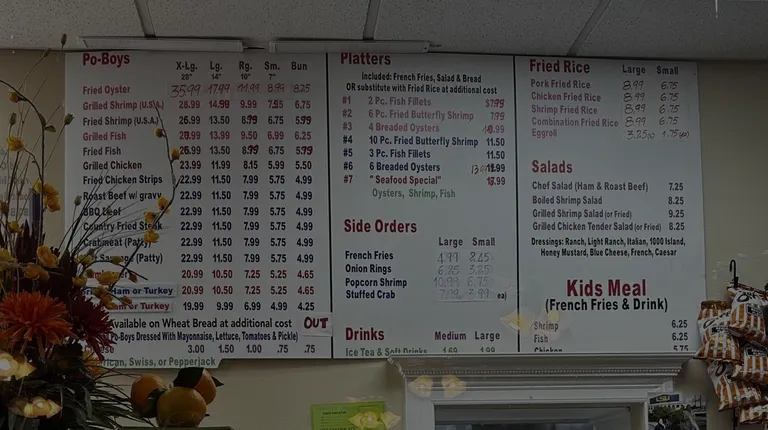 Po-Boys
X-Lg. Lg. Rg. Sm. Bun
20" 14" 10" 7"
Fried Oyster 35.99 17.99 11.99 8.99 8.25
Grilled Shrimp (U.S.A.) 28.99 14.99 9.99 7.95 6.75
Fried Shrimp (U.S.A.) 26.99 13.50 8.99 6.75 5.99
Grilled Fish 13.99 9.50 6.99 6.25
Fried Fish 26.99 13.50 8.99 6.75 5.99
Grilled Chicken 23.99 11.99 8.15 5.99 5.50
Fried Chicken Strips 22.99 11.50 7.99 5.75 4.99
Roast Beef w/ gravy 22.99 11.50 7.99 5.75 4.99
BBQ Beef 22.99 11.50 7.99 5.75 4.99
Country Fried Steak 22.99 11.50 7.99 5.75 4.99
Crabmeat (Patty) 22.99 11.50 7.99 5.75 4.99
Sausage (Patty) 22.99 11.50 7.99 5.75 4.99
20.99 10.50 7.25 5.25 4.65
Ham or Turkey 20.99 10.50 7.25 5.25 4.65
Ham or Turkey 19.99 9.99 6.99 4.99 4.25
Available on Wheat Bread at additional cost OUT
Po-Boys Dressed With Mayonnaise, Lettuce, Tomatoes & Pickle)
3.00 1.50 1.00 .75 .75
American, Swiss, or Pepperjack
Platters
Included: French Fries, Salad & Bread
OR substitute with Fried Rice at additional cost
#1 2 Pc. Fish Fillets
#2 6 Pc. Fried Butterfly Shrimp
#3 4 Breaded Oysters
#4 10 Pc. Fried Butterfly Shrimp 11.50
#5 3 Pc. Fish Fillets 11.50
#6 6 Breaded Oysters
#7 "Seafood Special"
Oysters, Shrimp, Fish
Side Orders
Large Small
French Fries 4.99
Onion Rings 6.25 3.25
Popcorn Shrimp 10.99 6.75
Stuffed Crab 3.99 ea)
Drinks Medium Large
Ice Tea & Soft Drinks 1.69 1.99
Fried Rice Large Small
Pork Fried Rice 8.99 6.75
Chicken Fried Rice 8.99 6.75
Shrimp Fried Rice 8.99 6.75
Combination Fried Rice 8.99 6.75
Eggroll 3.25 1.75
Salads
Chef Salad (Ham & Roast Beef) 7.25
Boiled Shrimp Salad 8.25
Grilled Shrimp Salad (or Fried) 9.25
Grilled Chicken Tender Salad (or Fried) 8.25
Dressings: Ranch, Light Ranch, Italian, 1000 Island,
Honey Mustard, Blue Cheese, French, Caesar
Kids Meal
(French Fries & Drink)
Shrimp 6.25
Fish 6.25
Chicken 5.75
LSU